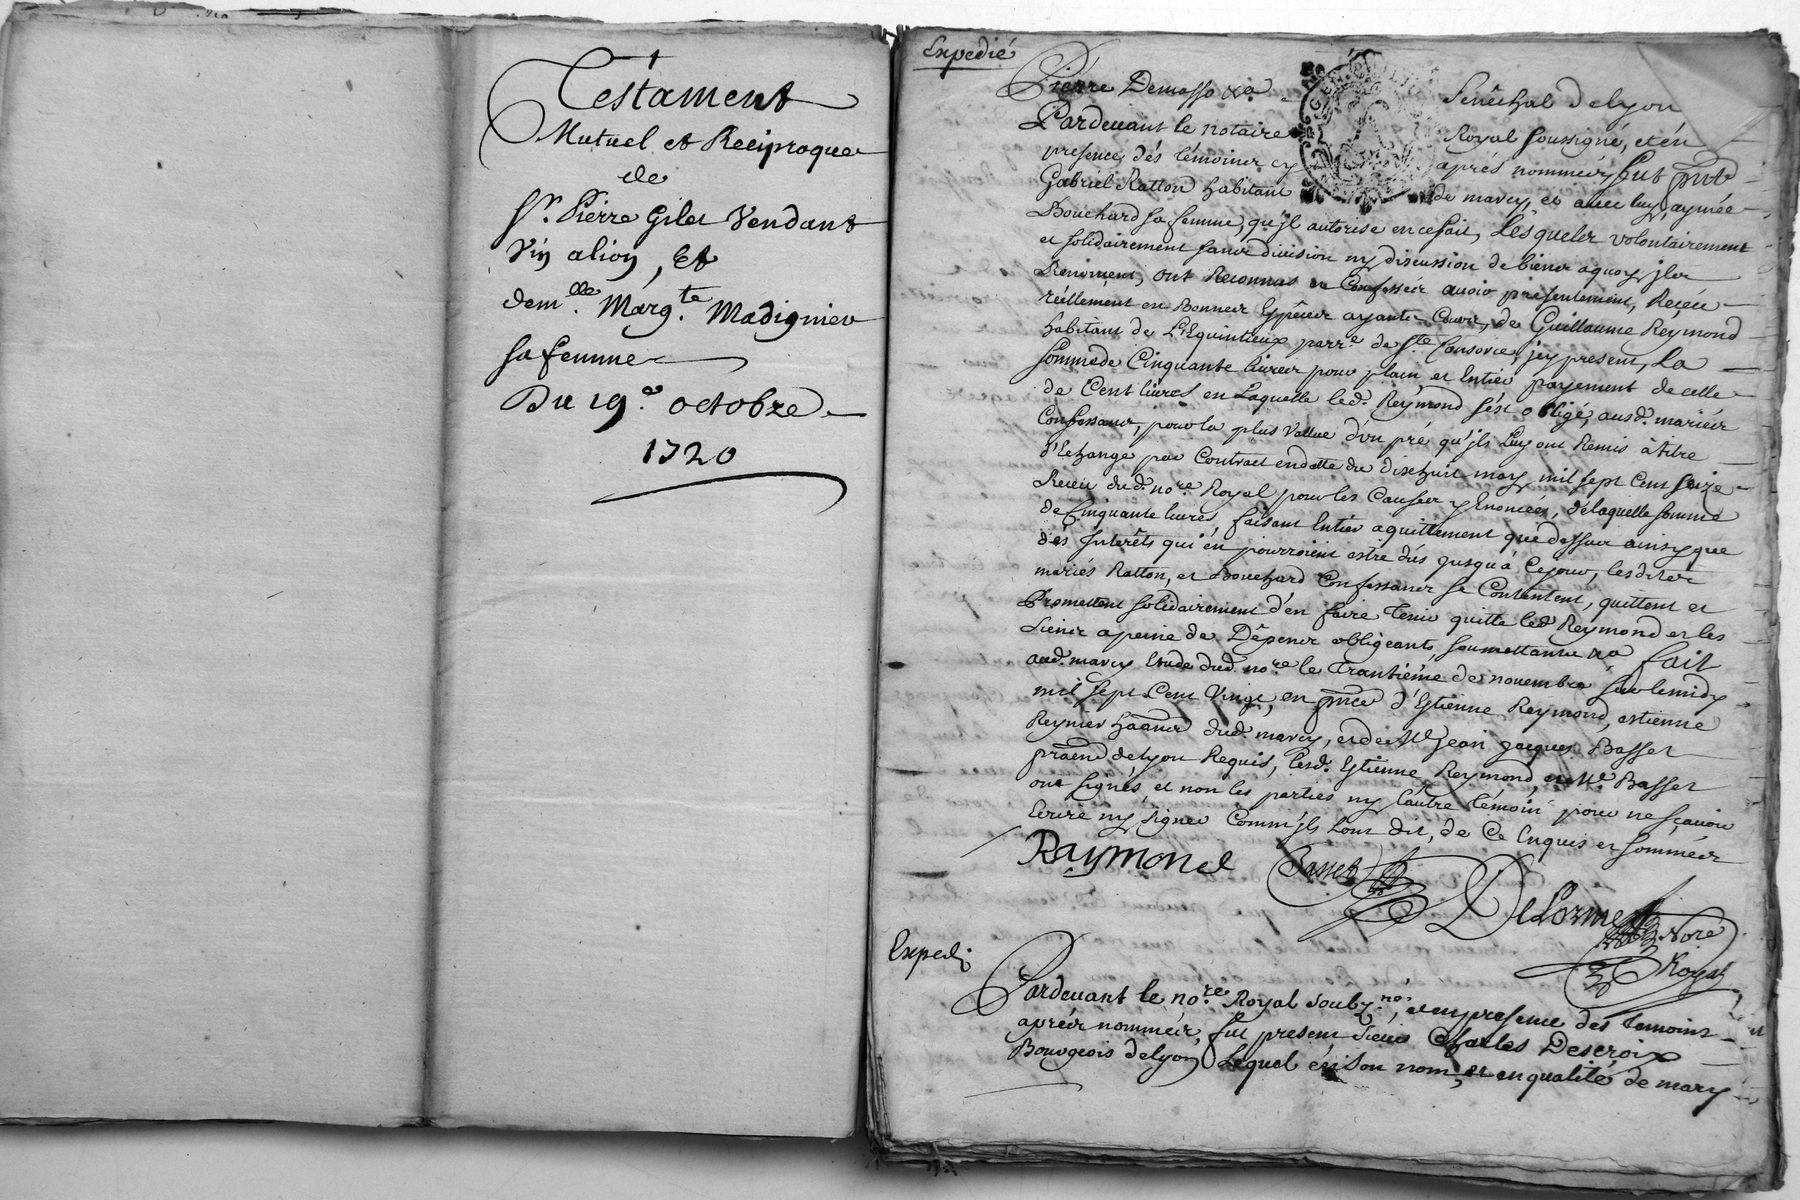 Testament
Mutuel et Reciproque
de
Sr. Pierre Gilet Vendant
Vin alion, Et
demlle. Margte. Madignier
sa femme
Du 19e. octobre
1720
Expedié
Pierre Demasso &a. Senêchal delyon
Pardevant le notaire Royal soussigné, et én
presence dés témoiner cy aprés nomméz fut pnt
Gabriel Ratton habitant de marcy, et avec luy aymée
Bouchard sa femme, qu'jl autorise encefait, Lésqueler volontairement
et solidairement sanr division ny discussion debiener aquoy jler
Renoncent, ont Reconnus et Confesser avoir presentement, Receu
réellement en Bonner Espêcer ayant Cour, de Guillaume Reymond
habitant de L'Equintieux parre. de Ste. Consorce, jcy present, La
somme de Cinquante livrer pour plain et Entier payement de celle
de Cent livres en Laquelle led. Reymond s'ést obligé, ausd. mariér
Confessanr, pour la plus Vallue d'un pré qu'jls Luy ont Remis à titre
d'Echange par Contract endatte du dixhuit may mil sept Cent seize
Receu dud. nore. Royal pour les Causer y Enoncées, délaquelle somme
de Cinquante livres, faisant Entier aquittement que dessur ainsy que
dés Interêts qui én pourroient estre dûs jusqu'à Cejour, lesditer
mariés Ratton, et Bouchard Confessanr se Contentent, quittent et
Promettent solidairement d'en faire tenir quitte led. Reymond et les
sienr apeine de Dêpener obligeants, soumettants &a fait
aud. marcy Etude dud. nore le trantiéme de novembre sur lemidy
mil sept Cent Vingt, en pnce d'Estienne Reymond, estienne
Reynier haânr dud. marcy, et de Me Jean jacques Basset
praên delyon Requis, Lesd. Estienne Reymond, et Me Basset
ont signés, et non les parties ny l'autre témoin pour nesçavoir
Ecrire ny signer Comm'jls Lont dit, de Ce Enquis et sommér
Raymond Basset
DeLorme
Nore
Royal
Expedi.
Pardevant le nore. Royal soubzne., et en presence des temoins
apréer nommér, fut present sieur Charles Descroix
Bourgeois delyon Lequel én son nom, et en qualité de mary